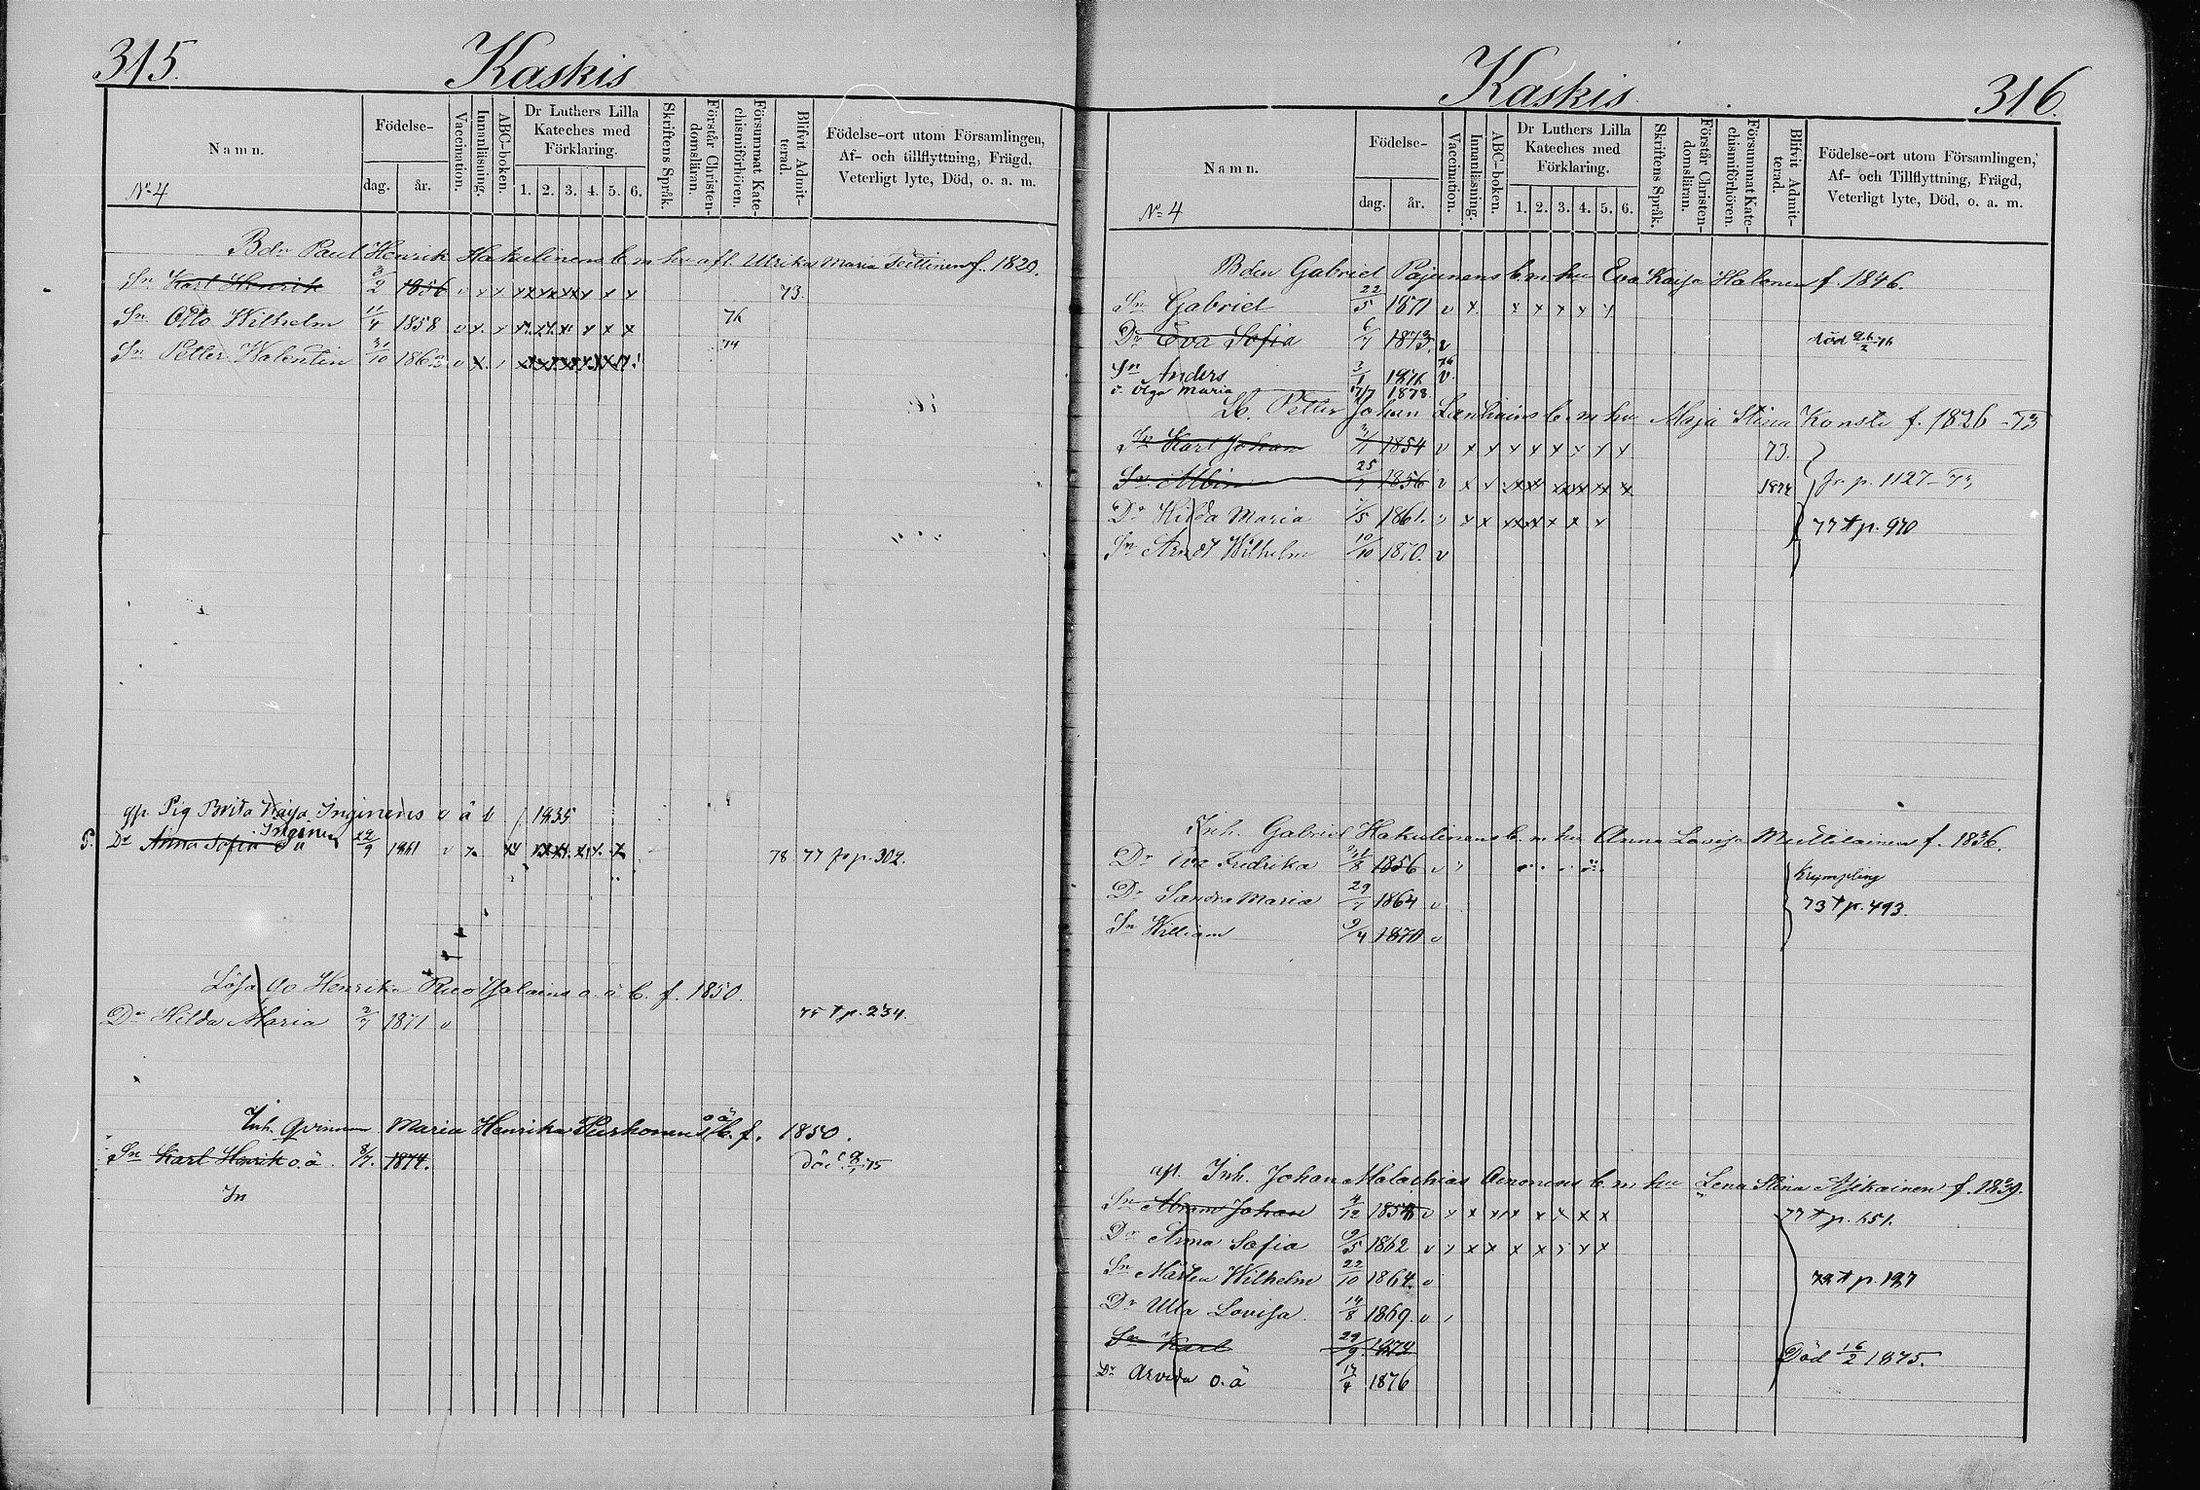 315.
Kaskis
Namn.
Födelse-
dag.
år.
Vaccination.
Innanläsning.
ABC-boken.
Dr Luthers Lilla
Kateches med
Förklaring.
1. 2. 3. 4. 5. 6.
Skriftens Språk.
Förstår Christen-
domsläran.
Försummat Kate-
chismiförhören.
Blifvit Admit-
terad.
Födelse-ort utom Församlingen,
Af- och tillflyttning, Frägd,
Veterligt lyte, Död, o. a. m.
No 4
Bdn Paul Henrik Hakulinens b. m. hu afl. Ulrika Maria f. 1820.
Sn Karl Henrik 2 1856 v 73.
Sn Otto Wilhelm 11/4 1858 v 76
Sn Petter Walentin 31/10 1863 v 74
Pig Brita Kaisa Inginens o ä b f 1835
Dr Anna Sofia o ä Inginen 29/9 1861 v 78 77 p. 302.
Lösa Qv Henrika o. ä b. f. 1850.
Dr Hilda Maria 2/7 1871 v 75 † p. 234.
Inh. Qvinnan Maria Henrika Purhonens o ä b. f. 1850.
Sn Karl Henrik o. ä. 8/7. 1874. Död 8/1 75
Sn
Kaskis
316.
Namn.
Födelse-
dag.
år.
Vaccination.
Innanläsning.
ABC-boken.
Dr Luthers Lilla
Kateches med
Förklaring.
1. 2. 3. 4. 5. 6.
Skriftens Språk.
Förstår Christen-
domsläran.
Försummat Kate-
chismiförhören.
Blifvit Admit-
terad.
Födelse-ort utom Församlingen,
Af- och Tillflyttning, Frägd,
Veterligt lyte, Död, o. a. m.
No 4
Bden Gabriel Pajunens b. m. hu Eva Kaisa Halonen f. 1846.
Sn Gabriel 22/5 1871 v
Dr Eva Sofia 6/7 1873. v död 26/2 76
Sn Anders 3/1 1876 v 76
D. Olga Maria 17/7 1878.
Petter Johan b. m. hu Maja Stina f. 1826 - 73
Sn Karl Johan 1854 v 73.
Sn Albin 25/7 1856 v 1874 p. 1127 - 73
Dr Hilda Maria 1/5 1861. 77 † p. 970
Sn Arndt Wilhelm 10/10 1870. v
Inh. Gabriel Hakulinens b. m. hu Anna Lovisa f. 1836.
Dr Eva Fredrika 1856 v Krympling
Dr Sandra Maria 29/7 1864 v 73 † p. 493.
Sn William 9/4 1870 v
Inh. Johan Malachias b. m. hu Lena Stina f. 1839.
Sn Abram Johan 4/12 1858 v 77 † p. 651.
Dr Anna Sofia 9/5 1862 v
Sn Mårten Wilhelm 22/10 1864 v † p. 197
Dr Ulla Lovisa. 14/8 1869. v
Sn Karl 29/9 1874 Död 16/2 1875.
Dr Arvida o. ä 17/4 1876